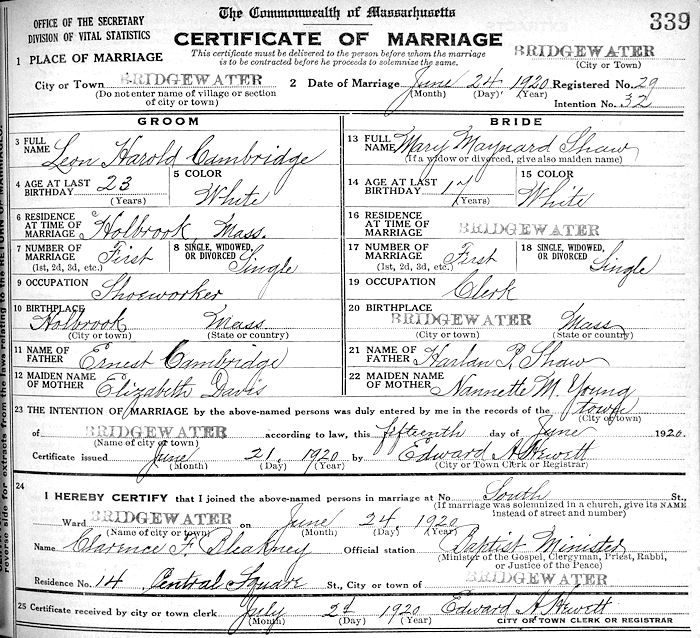 The Commonwealth of Massachusetts
339
OFFICE OF THE SECRETARY
DIVISION OF VITAL STATISTICS
CERTIFICATE OF MARRIAGE
This certificate must be delivered to the person before whom the marriage
is to be contracted before he proceeds to solemnize the same.
BRIDGEWATER
(City or Town)
1 PLACE OF MARRIAGE
City or Town BRIDGEWATER 2 Date of Marriage June 24 1920 Registered No. 29
(Do not enter name of village or section of city or town) (Month) (Day) (Year) Intention No. 32
GROOM BRIDE
3 FULL NAME Leon Harold Cambridge 13 FULL NAME Mary Maynard Shaw
(If a widow or divorced, give also maiden name)
4 AGE AT LAST BIRTHDAY 23 (Years) 5 COLOR White 14 AGE AT LAST BIRTHDAY 17 (Years) 15 COLOR White
6 RESIDENCE AT TIME OF MARRIAGE Holbrook, Mass. 16 RESIDENCE AT TIME OF MARRIAGE BRIDGEWATER
7 NUMBER OF MARRIAGE First (1st, 2d, 3d, etc.) 8 SINGLE, WIDOWED, OR DIVORCED Single 17 NUMBER OF MARRIAGE First (1st, 2d, 3d, etc.) 18 SINGLE, WIDOWED, OR DIVORCED Single
9 OCCUPATION Shoeworker 19 OCCUPATION Clerk
10 BIRTHPLACE Holbrook Mass. 20 BIRTHPLACE BRIDGEWATER Mass
(City or town) (State or country) (City or town) (State or country)
11 NAME OF FATHER Ernest Cambridge 21 NAME OF FATHER Harlan P. Shaw
12 MAIDEN NAME OF MOTHER Elizabeth Davis 22 MAIDEN NAME OF MOTHER Nannette M. Young
23 THE INTENTION OF MARRIAGE by the above-named persons was duly entered by me in the records of the town
(City or town)
of BRIDGEWATER according to law, this fifteenth day of June 1920.
(Name of city or town)
Certificate issued June 21. 1920 by Edward A Hewett
(Month) (Day) (Year) (City or Town Clerk or Registrar)
24 I HEREBY CERTIFY that I joined the above-named persons in marriage at No. South St.,
(If marriage was solemnized in a church, give its NAME instead of street and number)
Ward BRIDGEWATER on June 24, 1920
(Name of city or town) (Month) (Day) (Year)
Name Clarence F. Bleakney Official station Baptist Minister
(Minister of the Gospel, Clergyman, Priest, Rabbi, or Justice of the Peace)
Residence No. 14 Central Square St., City or town of BRIDGEWATER
25 Certificate received by city or town clerk July 2d 1920 Edward A. Hewett
(Month) (Day) (Year) CITY OR TOWN CLERK OR REGISTRAR